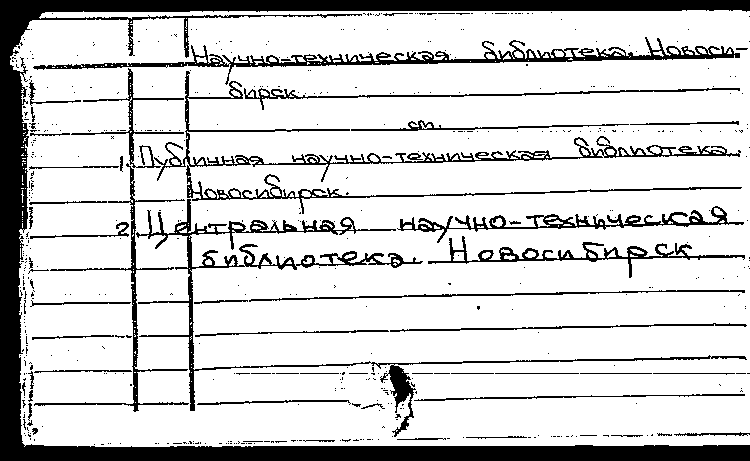 Научно-техническая библиотека. Новоси-
бирск.
см.
1. Публичная научно-техническая библиотека.
Новосибирск.
2. Центральная научно-техническая
библиотека. Новосибирск